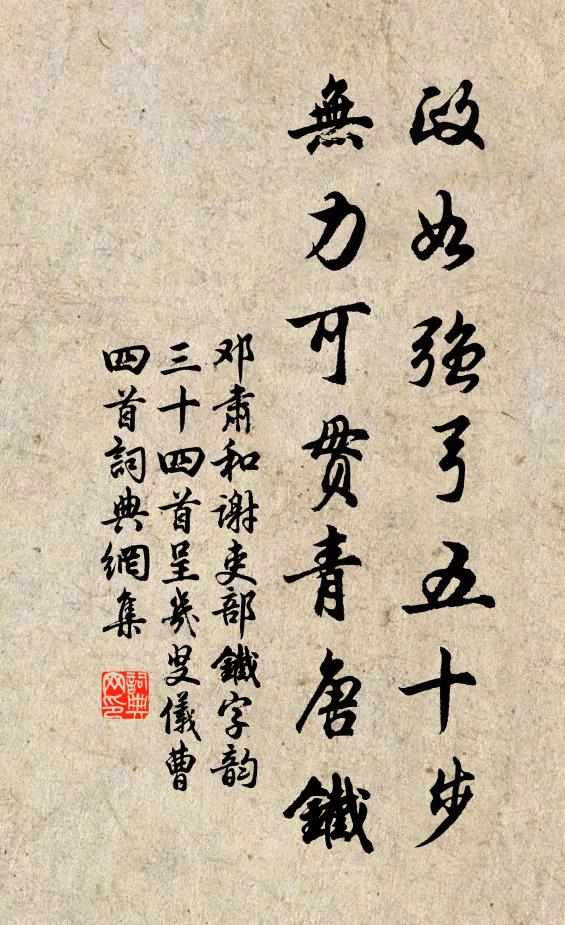 政如強弓五十步
無力可貫青唐鐵
邓肅和謝吏部鐵字韵
三十四首呈幾叟儀曹
四首詞典網集
詞典网印